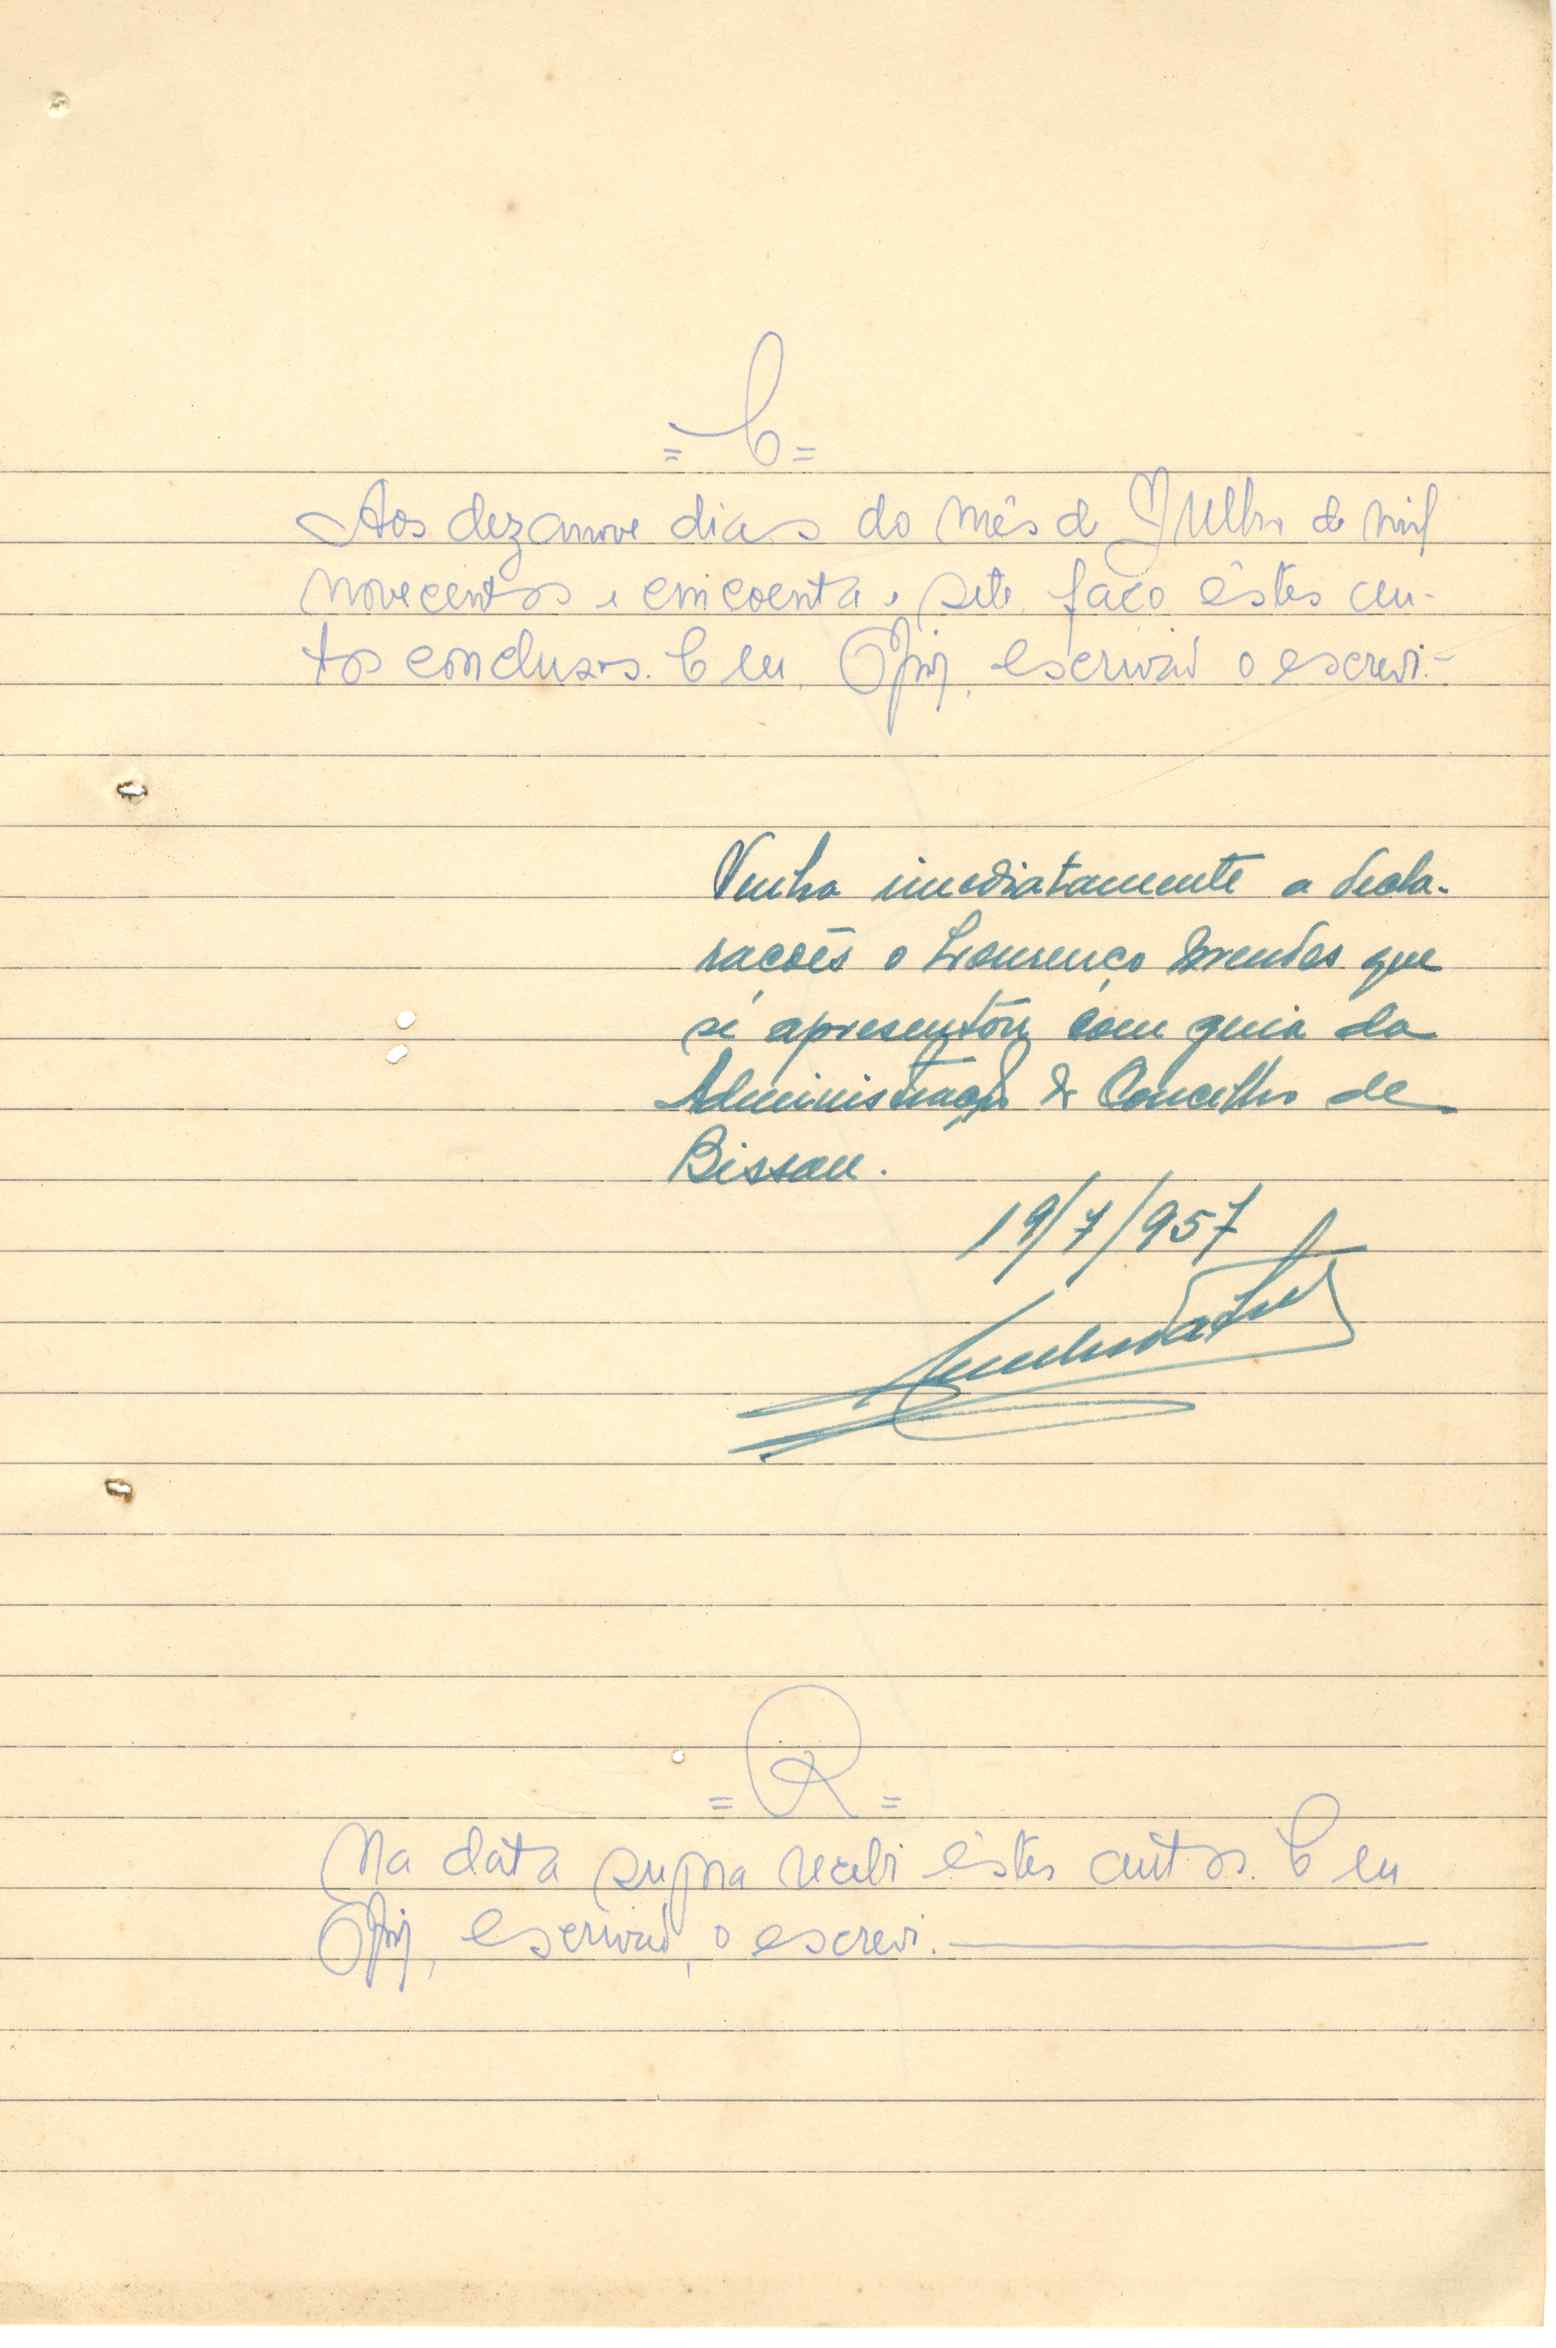 = C =
Aos dezanove dias do mês de Julho de mil
novecentos e cincoenta e sete faço êstes au-
tos conclusos. E eu, escrivão o escrevi.-
Venha imediatamente a decla-
rações o Lourenço Mendes que
se apresentou com guia da
Administração do Concelho de
Bissau.
19/7/957
= R =
Na data supra recebi êstes autos. E eu
escrivão, o escrevi.